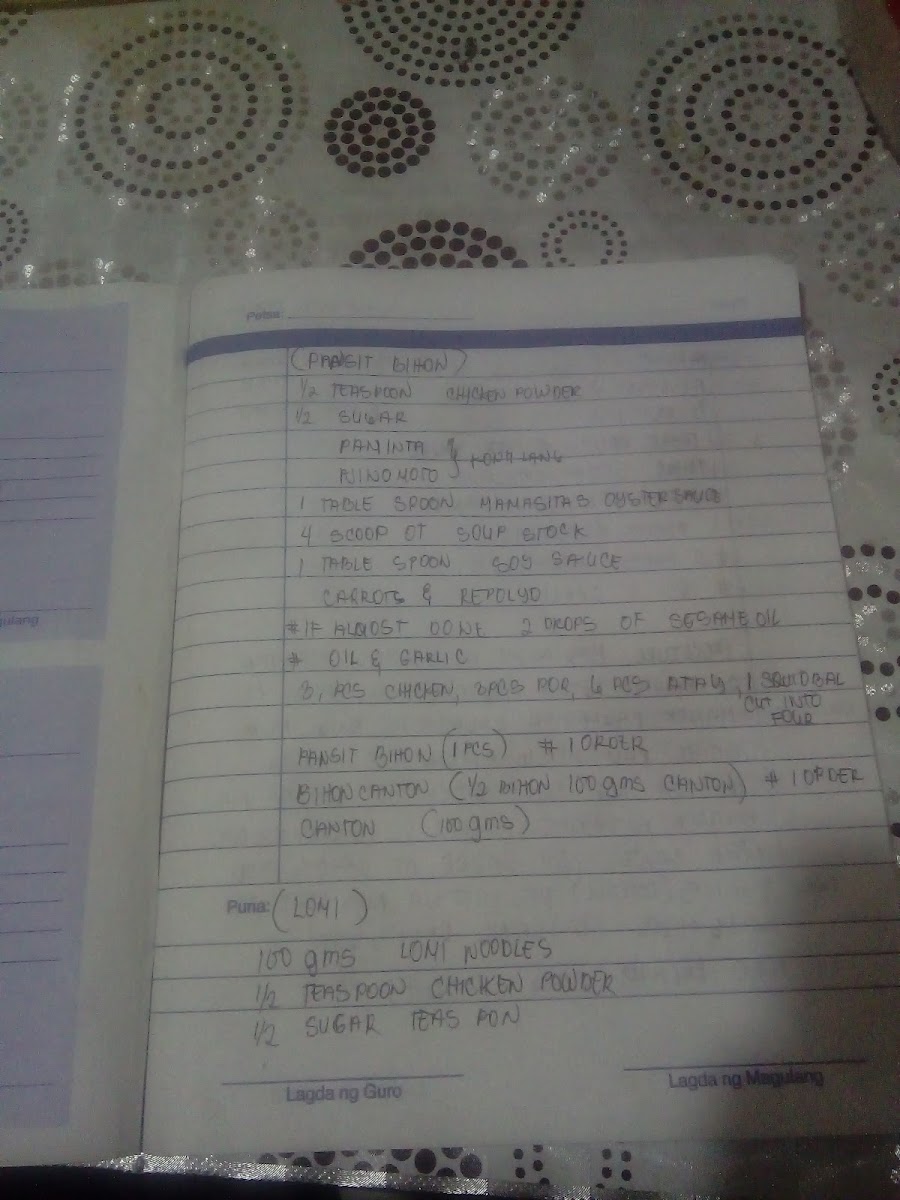 Petsa:
(PANSIT BIHON)
1/2 TEASPOON CHICKEN POWDER
1/2 SUGAR
PAMINTA } KONTI LANG
AJINOMOTO
1 TABLE SPOON MAMASITAS OYSTER SAUCE
4 SCOOP OF SOUP STOCK
1 TABLE SPOON SOY SAUCE
CARROTS & REPOLYO
# IF ALMOST DONE 2 DROPS OF SESAME OIL
# OIL & GARLIC
3, PCS CHICKEN, 3PCS POR, 6 PCS ATAY, 1 SQUIDBAL
CUT INTO
FOUR
PANSIT BIHON (1 PCS) # 1 ORDER
BIHON CANTON (1/2 BIHON 100 gms CANTON) # 1 ORDER
CANTON (100 gms)
Puna: (LOMI)
100 gms LOMI NOODLES
1/2 TEASPOON CHICKEN POWDER
1/2 SUGAR TEAS PON
Lagda ng Guro
Lagda ng Magulang
gulang